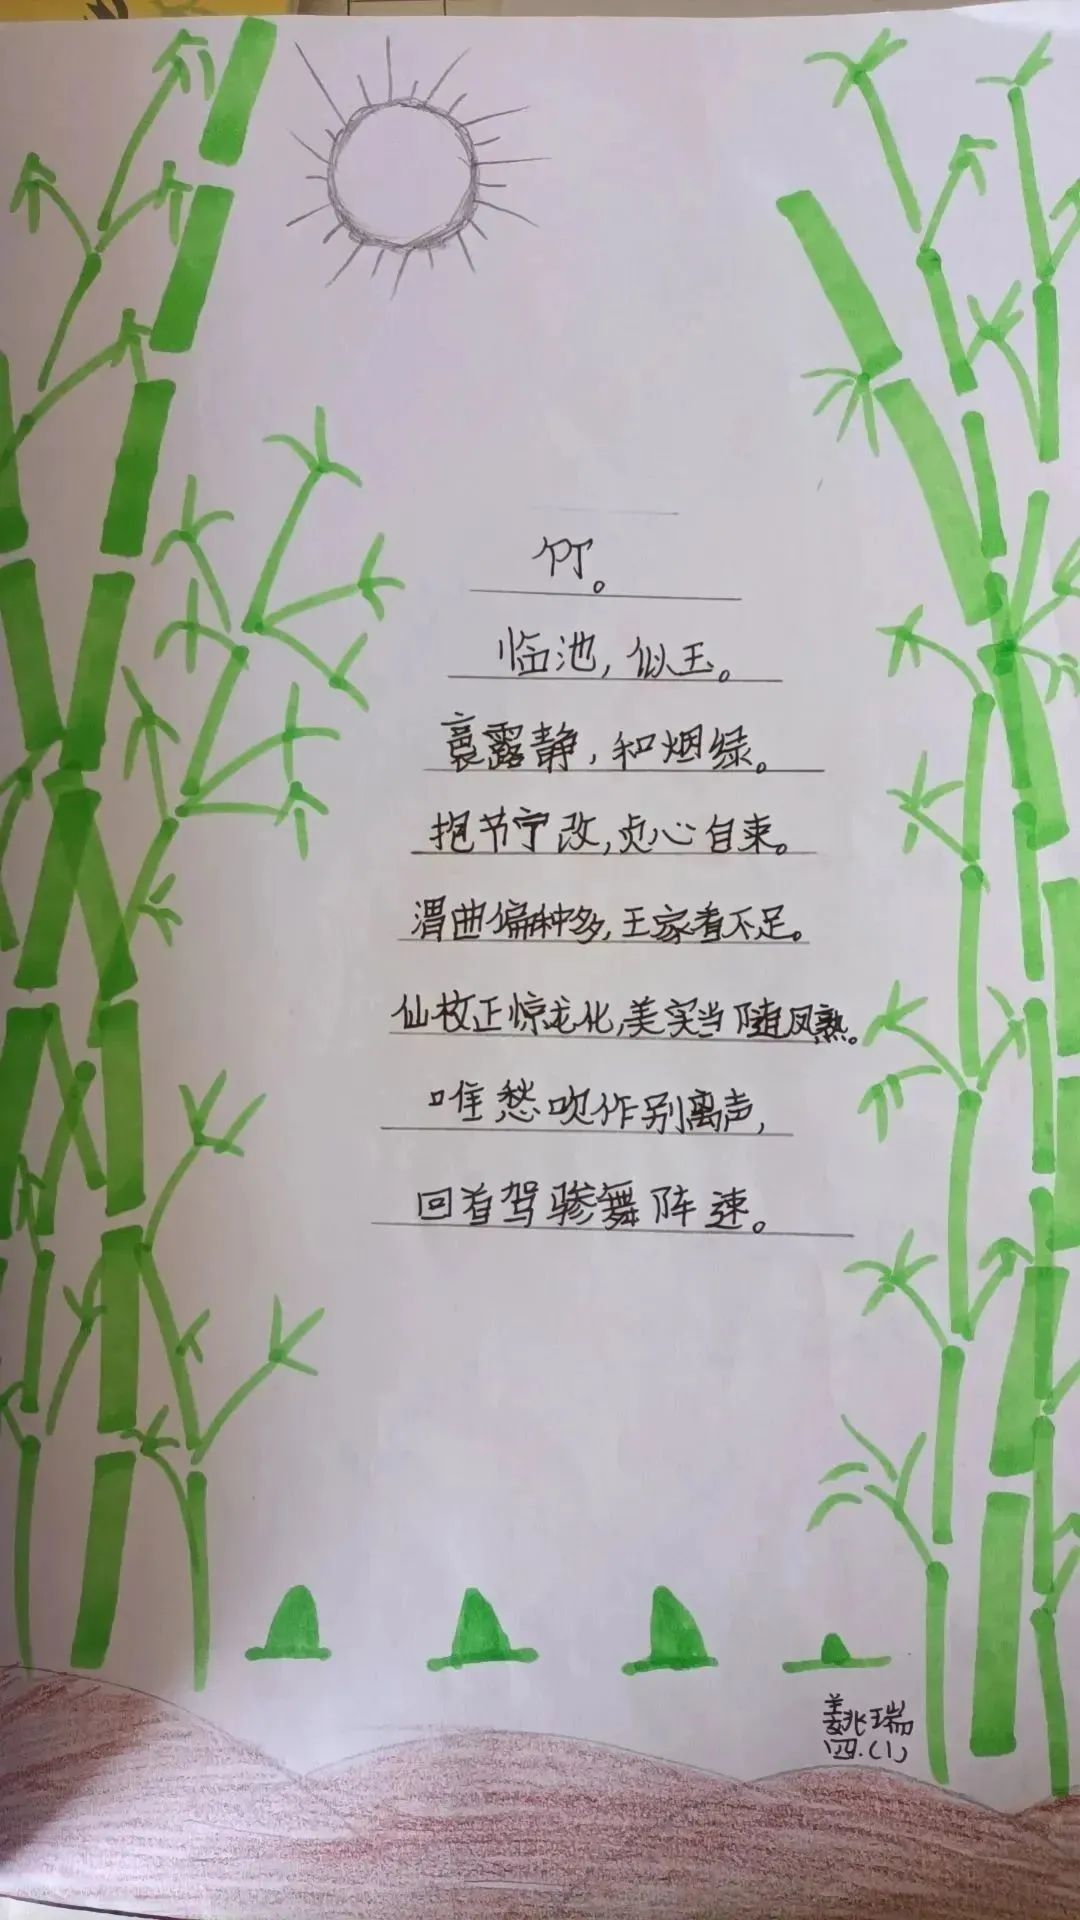 竹。
临池，似玉。
裛露静，和烟绿。
抱节宁改，贞心自束。
渭曲偏种多，王家看不足。
仙杖正惊龙化，美实当随凤熟。
唯愁吹作别离声，
回首驾骖舞阵速。
姜兆瑞
四.(1)